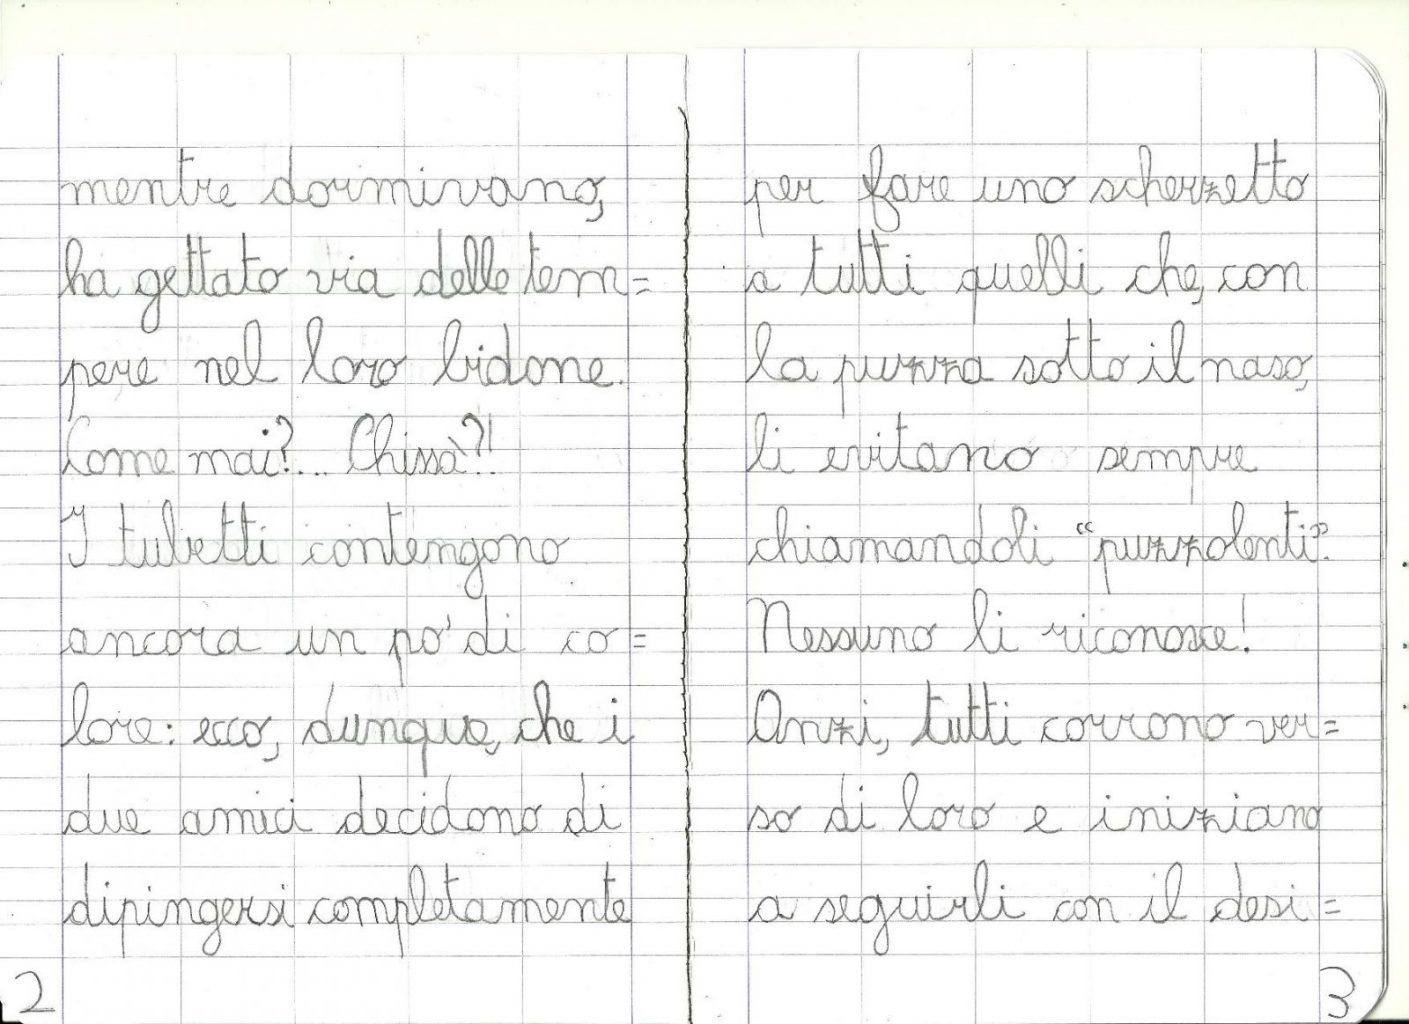 mentre dormivano,
ha gettato via delle tem=
pere nel loro bidone.
Come mai?... Chissà?!
I tubetti contengono
ancora un po' di co=
lore: ecco, dunque, che i
due amici decidono di
dipingersi completamente
2
per fare uno scherzetto
a tutti quelli che, con
la puzza sotto il naso,
li evitano sempre
chiamandoli “puzzolenti”.
Nessuno li riconosce!
Anzi, tutti corrono ver=
so di loro e iniziano
a seguirli con il desi=
3